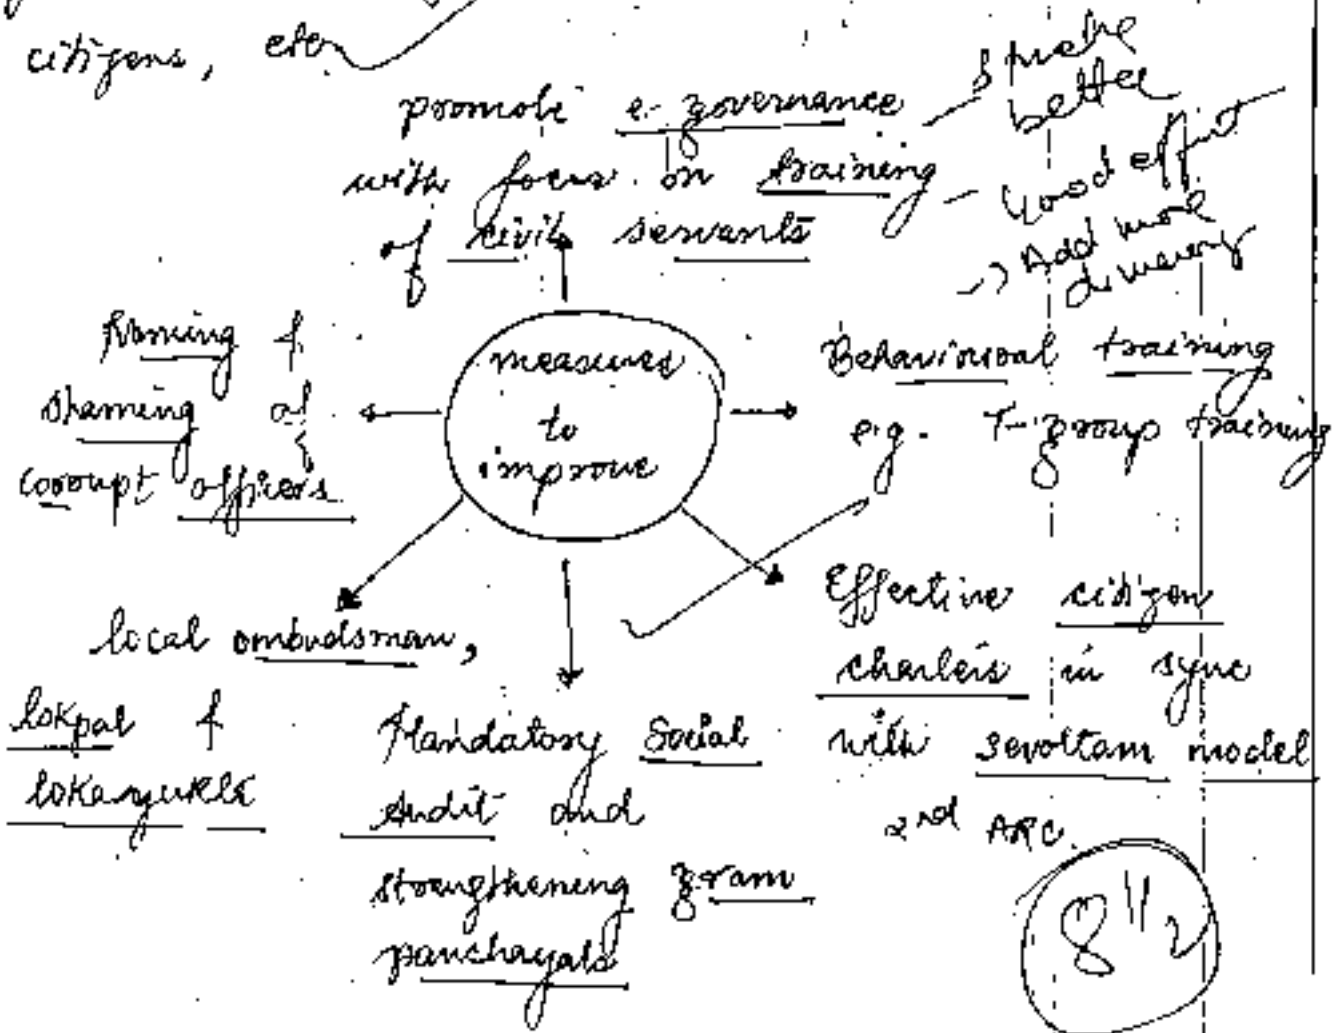 citizens, etc
promote e-governance
with focus on training
of civil servants
better
Good effort
Add more
Naming &
Shaming of
corrupt officers
measures
to
improve
Behavioural training
e.g. T-group training
local ombudsman,
lokpal &
lokayukta
Mandatory Social
Audit and
strengthening gram
panchayats
Effective citizen
charters in sync
with sevottam model
2nd ARC.
8 1/2